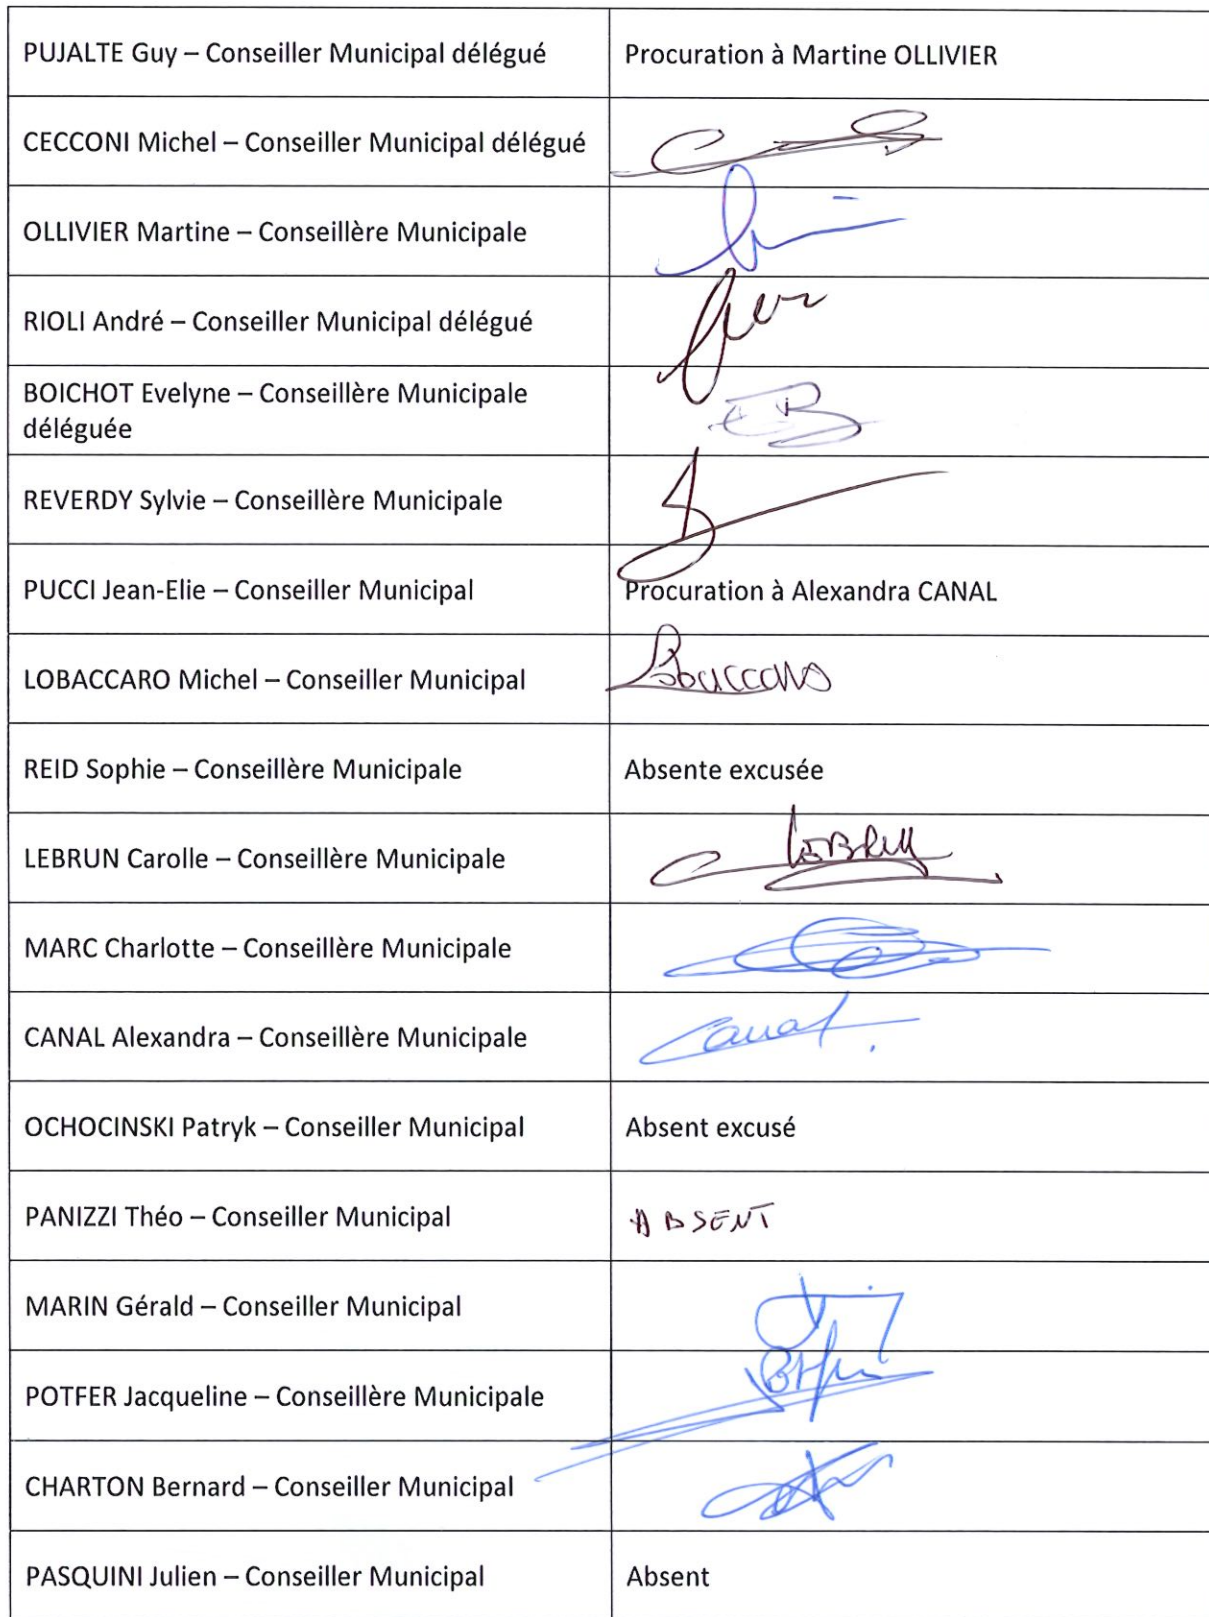 PUJALTE Guy – Conseiller Municipal délégué
Procuration à Martine OLLIVIER
CECCONI Michel – Conseiller Municipal délégué
OLLIVIER Martine – Conseillère Municipale
RIOLI André – Conseiller Municipal délégué
BOICHOT Evelyne – Conseillère Municipale
déléguée
EB
REVERDY Sylvie – Conseillère Municipale
PUCCI Jean-Elie – Conseiller Municipal
Procuration à Alexandra CANAL
LOBACCARO Michel – Conseiller Municipal
REID Sophie – Conseillère Municipale
Absente excusée
LEBRUN Carolle – Conseillère Municipale
LEBRUN
MARC Charlotte – Conseillère Municipale
CANAL Alexandra – Conseillère Municipale
Canal
OCHOCINSKI Patryk – Conseiller Municipal
Absent excusé
PANIZZI Théo – Conseiller Municipal
ABSENT
MARIN Gérald – Conseiller Municipal
POTFER Jacqueline – Conseillère Municipale
CHARTON Bernard – Conseiller Municipal
PASQUINI Julien – Conseiller Municipal
Absent